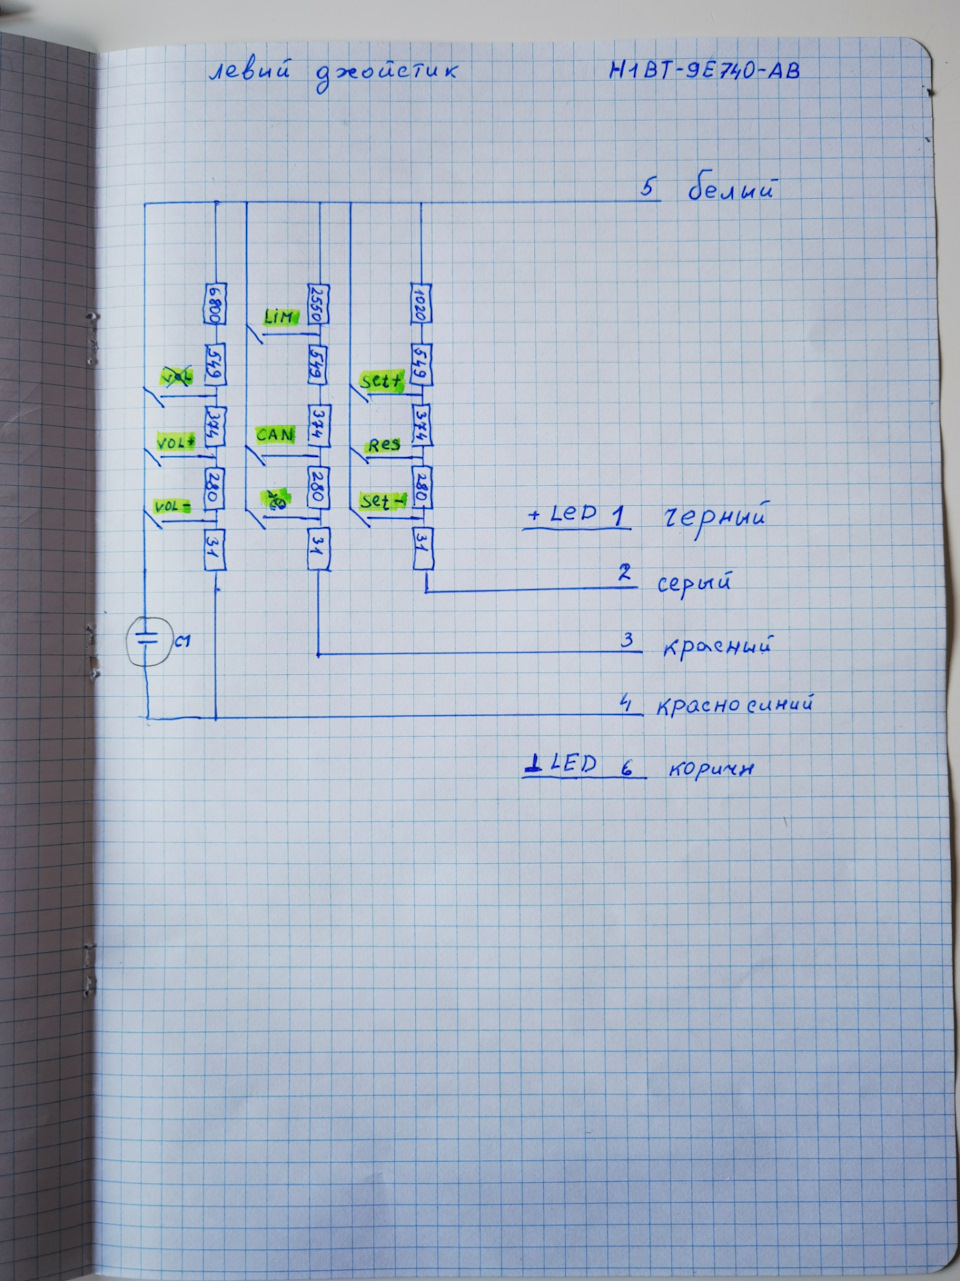 левый джойстик H1BT-9E740-AB
5 белый
6800 2550 1020
LiM
549 549 549
VOL Set+
374 374 374
VOL+ CAN Res
280 280 280
VOL- Set-
+ LED 1 черный
31 31 31
2 серый
C1 3 красный
4 красно синий
⊥ LED 6 коричн